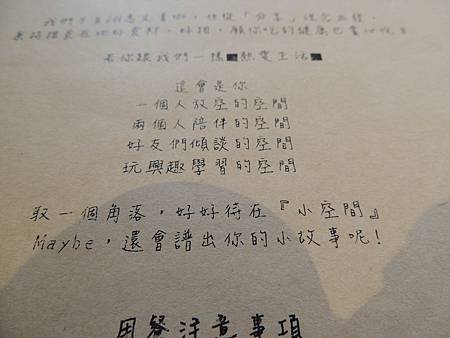 若你跟我們一樣熱愛生活
還會是你
一個人放空的空間
兩個人陪伴的空間
好友們傾談的空間
玩興趣學習的空間
取一個角落，好好待在『小空間』
Maybe，還會譜出你的小故事呢！
用餐注意事項